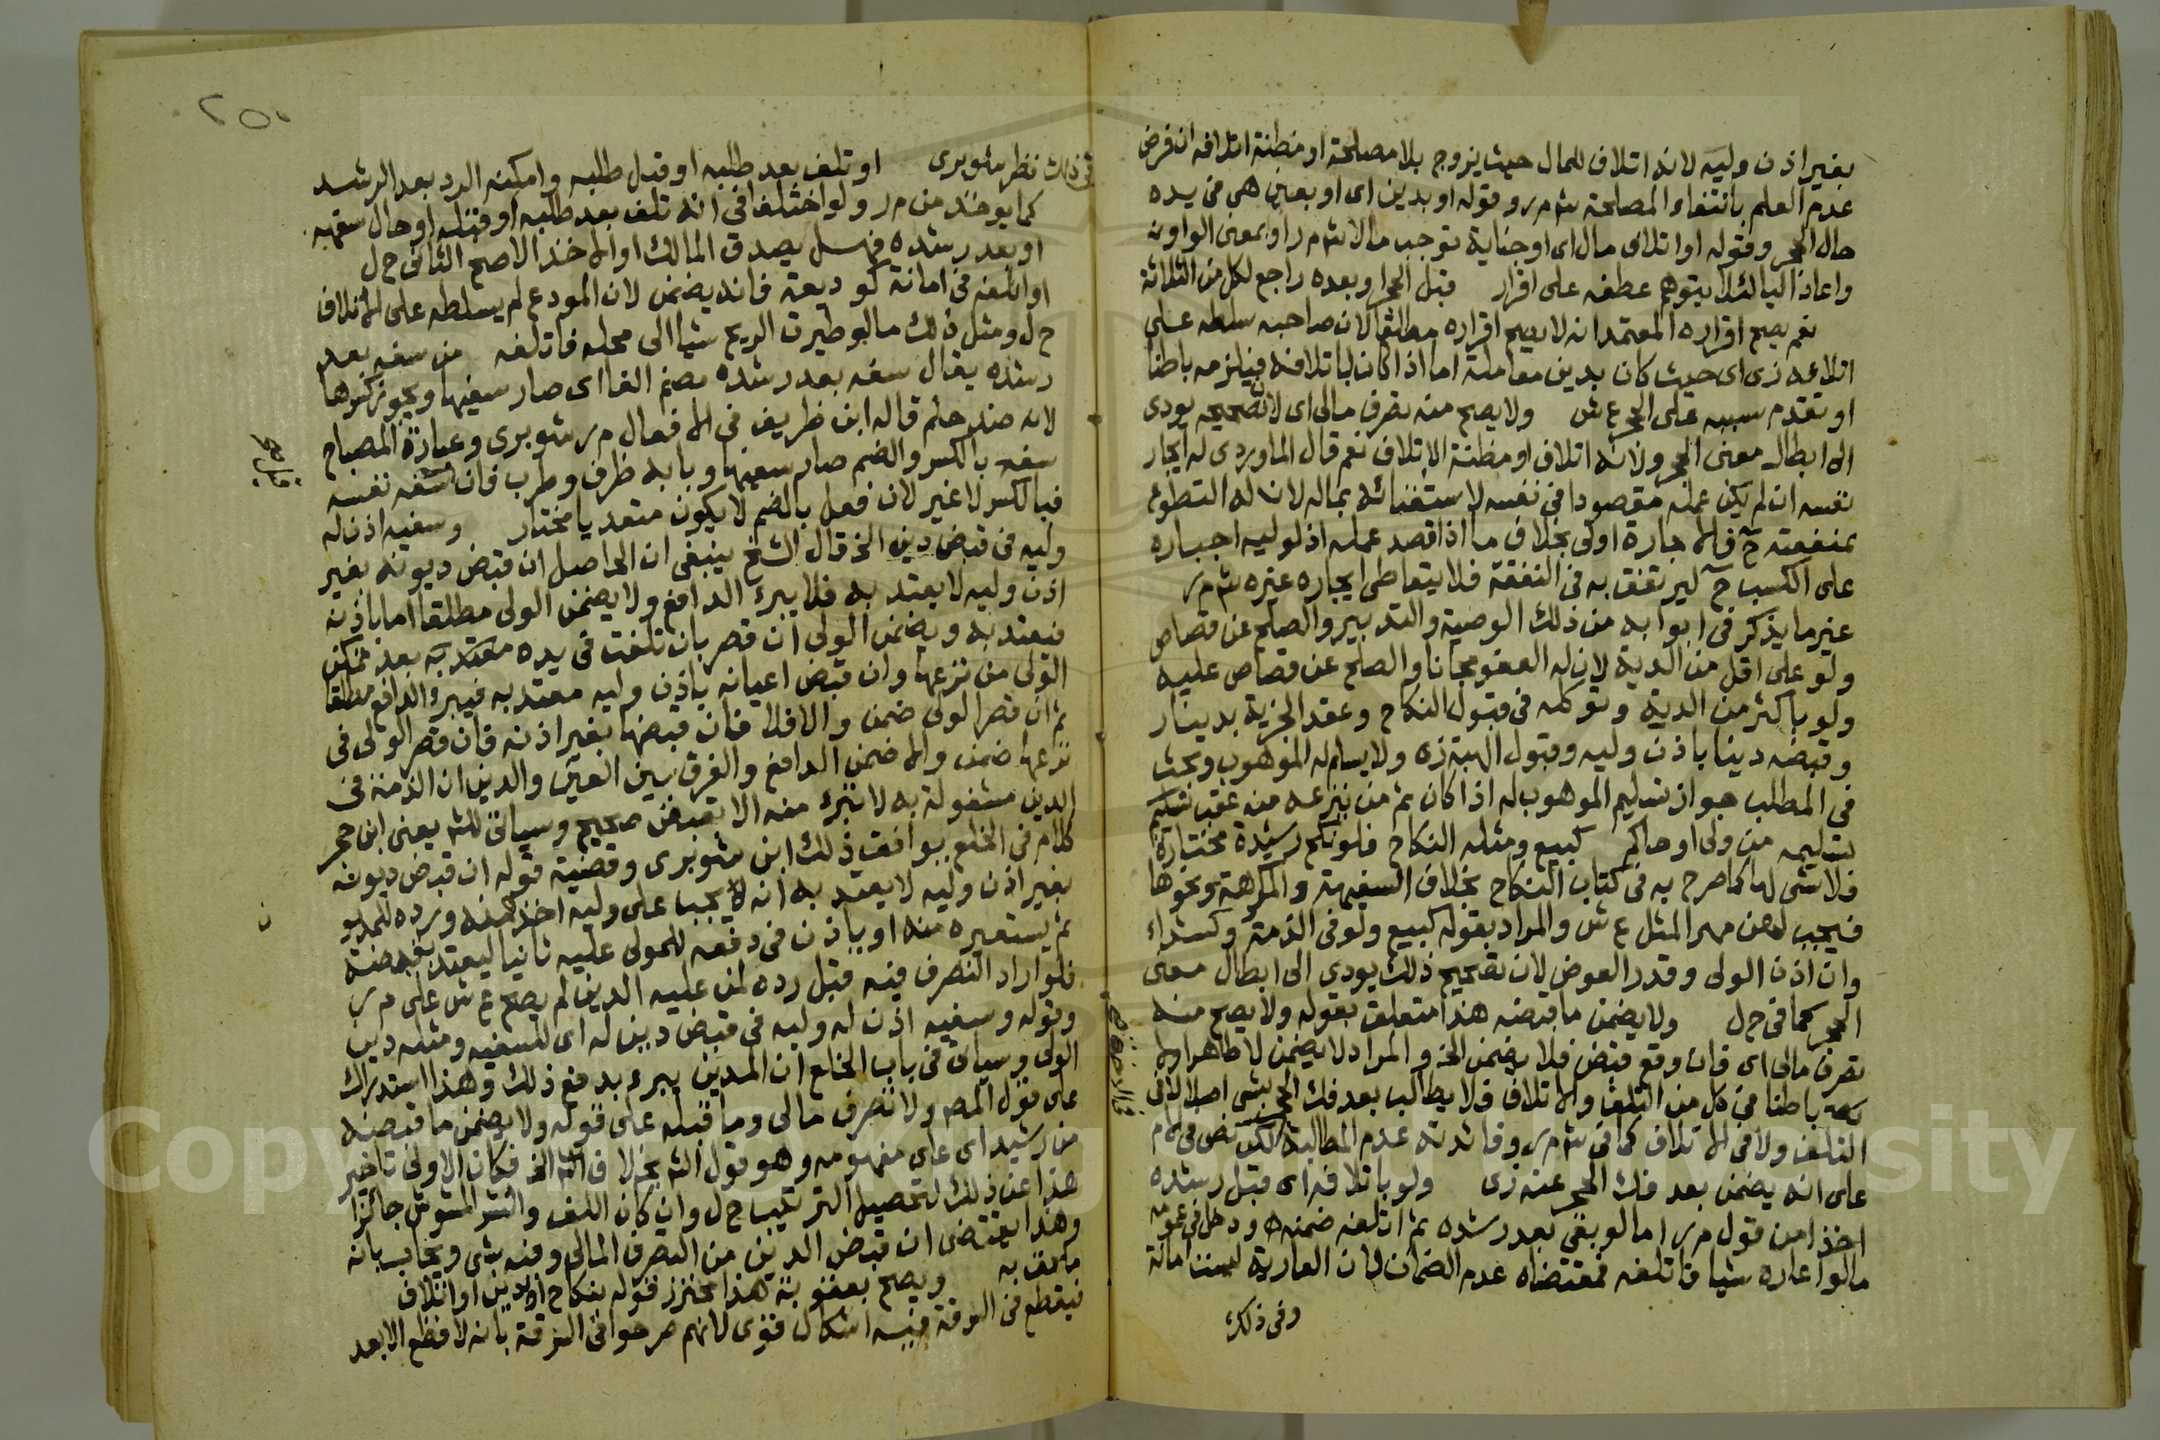 بغير اذن وليه لانه اتلاف للمال حيث يزوج بلا مصلحة او مظنة اتلافه ان فرض
عدم العلم بانتفاء المصلحة ش م ر وقوله او بدين اى او بعين هى فى يده
حال الحجر وقوله او اتلاف مال اى او جناية توجب مالا ش م ر او بمعنى الواو
واعاد البا لئلا يتوهم عطفه على اقرار قبل الحجر او بعده راجع لكل من الثلاثة
نعم يصح اقراره المعتمد انه لا يصح اقراره مطلقا لان صاحبه سلطه على
اتلافه زى اى حيث كان بدين معاملة اما اذا كان باتلافه فيلزمه باطنا
او تقدم سببه على الحجر ع ش ولا يصح منه تصرف مالى اى لان تصحيحه يودى
الى ابطال معنى الحجر ولانه اتلاف او مظنة الاتلاف نعم قال الماوردى له ايجار
نفسه ان لم يكن عمله مقصودا فى نفسه لاستغنائه بماله لان له التطوع
بمنفعته ح فالاجارة اولى بخلاف ما اذا قصد عمله اذ لوليه اجباره
على الكسب ح ليرتفق به فى النفقة فلا يتعاطى ايجاره غيره ش م ر
غير ما يذكر فى ابوابه من ذلك الوصية والتدبير والصلح عن قصاص
ولو على اقل من الدية لان له العفو مجانا والصلح عن قصاص عليه
ولو باكثر من الدية وتوكله فى قبول النكاح وعقد الجزية بدينار
وقبضه دينا باذن وليه وقبول الهبة زه ولا يسلم له الموهوب وبحث
فى المطلب جواز تسليم الموهوب له اذا كان ثم من ينزعه منه عقب تسلمه
تسليمه من ولى او حاكم كبيع ومثله النكاح فلو نكح رشيدة مختارة
فلا شى لها كما صرح به فى كتاب النكاح بخلاف السفيهة والمكرهة ونحوها
فيجب لهن مهر المثل ع ش والمراد بقوله كبيع ولو فى الذمة وكشراء
وان اذن الولى وقدر العوض لان تصحيح ذلك يودى الى ابطال معنى
الحجر كما فى ح ل ولا يضمن ما قبضه هذا متعلق بقوله ولا يصح منه
تصرف مالى اى فان وقع قبض فلا يضمن الخ والمراد لا يضمن لا ظاهرا ولا
باطنا فى كل من التلف والاتلاف فلا يطالب بعد فك الحجر بشى اصلا لا فى
التلف ولا فى الاتلاف كما فى ش م ر وفائدته عدم المطالبة لكن نص فى الام
على انه يضمن بعد فك الحجر عنه زى ولو باتلافه اى قبل رشده
اخذا من قول م ر اما لو بقى بعد رشده ثم اتلفه ضمنه ودخل فى عمومه
ما لو اعاره شيا فاتلفه فمقتضاه عدم الضمان لان العارية ليست امانة
وفى ذلك
٢٥٠
فى ذلك نظر شوبرى او تلف بعد طلبه او قبل طلبه وامكنه الرد بعد الرشد
كما يوخذ من م ر ولو اختلفا فى انه تلف بعد طلبه او قبله او حال سفهه
او بعد رشده فهل يصدق المالك او الاخذ الاصح الثانى ح ل
او اتلفه فى امانة كوديعة فانه يضمن لان المودع لم يسلطه على الاتلاف
ح ل ومثل ذلك ما لو طيرت الريح شيا الى محله فاتلفه من سفه بعد
رشده يقال سفه بعد رشده بضم الفا اى صار سفيها ويجوز كسرها
لانه ضد حلم قاله ابن ظريف فى الافعال م ر شوبرى وعبارة المصباح
سفه بالكسر والضم صار سفيها وبابه ظرف وطرب فان سفه نفسه
فبالكسر لا غير لان فعل بالضم لا يكون متعديا مختار وسفيه اذن له
وليه فى قبض دين الخ قال الشيخ ينبغى ان الحاصل ان قبض ديونه بغير
اذن وليه لا يعتد به فلا يبرء الدافع ولا يضمن الولى مطلقا اما باذنه
فيعتد به ويضمن الولى ان قصر بان تلفت فى يده معتد به بعد تمكن
الولى من نزعها وان قبض اعيانه باذن وليه معتد به فيبرء الدافع مطلقا
ثم ان قصر الولى ضمن والا فلا فان قبضها بغير اذنه فان قصر الولى فى
نزعها ضمن والا ضمن الدافع والفرق بين العين والدين ان الذمة فى
الدين مشغولة به لا تبرء منه الا بقبض صحيح وسياتى للش يعنى ابن حجر
كلام فى الخلع يوافق ذلك ابن شوبرى وقضية قوله ان قبض ديونه
بغير اذن وليه لا يعتد به انه لا يجب على وليه اخذه منه ورده للمديو
ثم يستعيره منه او ياذن فى دفعه للمولى عليه ثانيا ليعتد بقبضه
فلو اراد التصرف فيه قبل رده لمن عليه الدين لم يصح ع ش على م ر
وقوله وسفيه اذن له وليه فى قبض دين له اى للسفيه ومثله دين
الولى وسياتى فى باب الخلع ان المدين يبرء بدفع ذلك وهذا استدراك
على قول المص ولا تصرف مالى وما قبله على قوله ولا يضمن ما قبضه
من رشيد اى على مفهومه وهو قول الش بخلاف الخ فكان الاولى تاخير
هذا عن ذلك لتحصيل الترتيب ح ل وان كان اللف والنشر المشوش جائزا
وهذا يقتضى ان قبض الدين من التصرف المالى وفيه شى ويجاب بانه
ملحق به ويصح بعقوبة هذا محترز قوله بنكاح او بدين او اتلاف
فيقطع فى السرقة فيه اشكال قوى لانهم صرحوا فى السرقة بانه لا قطع الا بعد